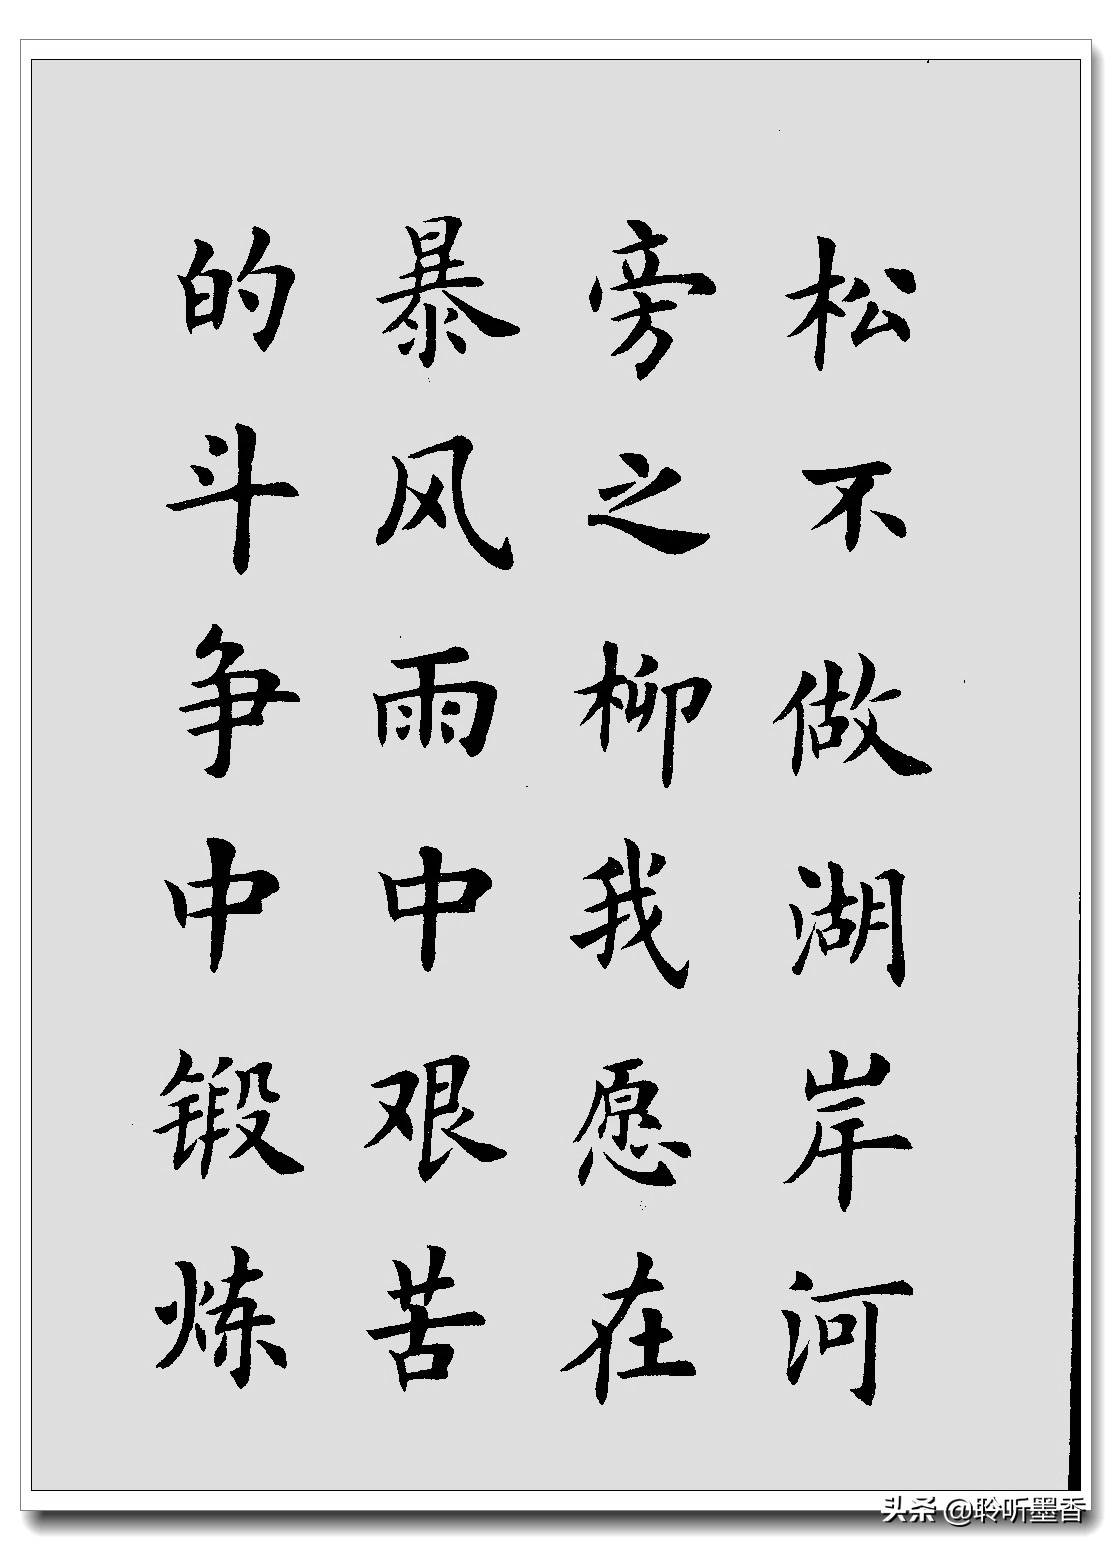 松不做湖岸河
旁之柳我愿在
暴风雨中艰苦
的斗争中锻炼
头条 @聆听墨香